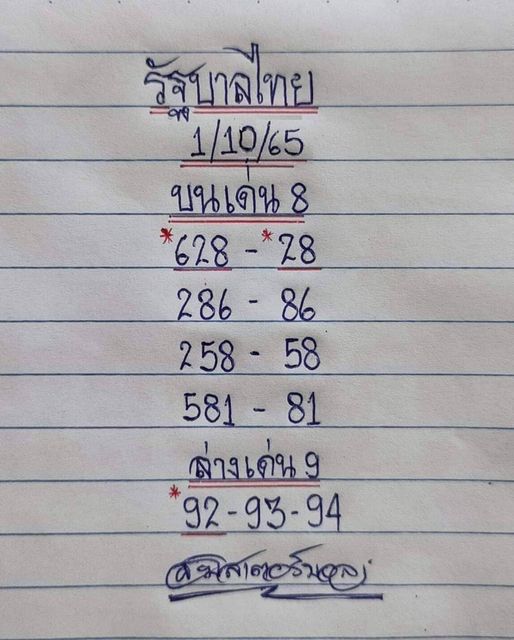 รัฐบาลไทย
1/10/65
บนเด่น 8
*628 - *28
286 - 86
258 - 58
581 - 81
ล่างเด่น 9
*92-93-94